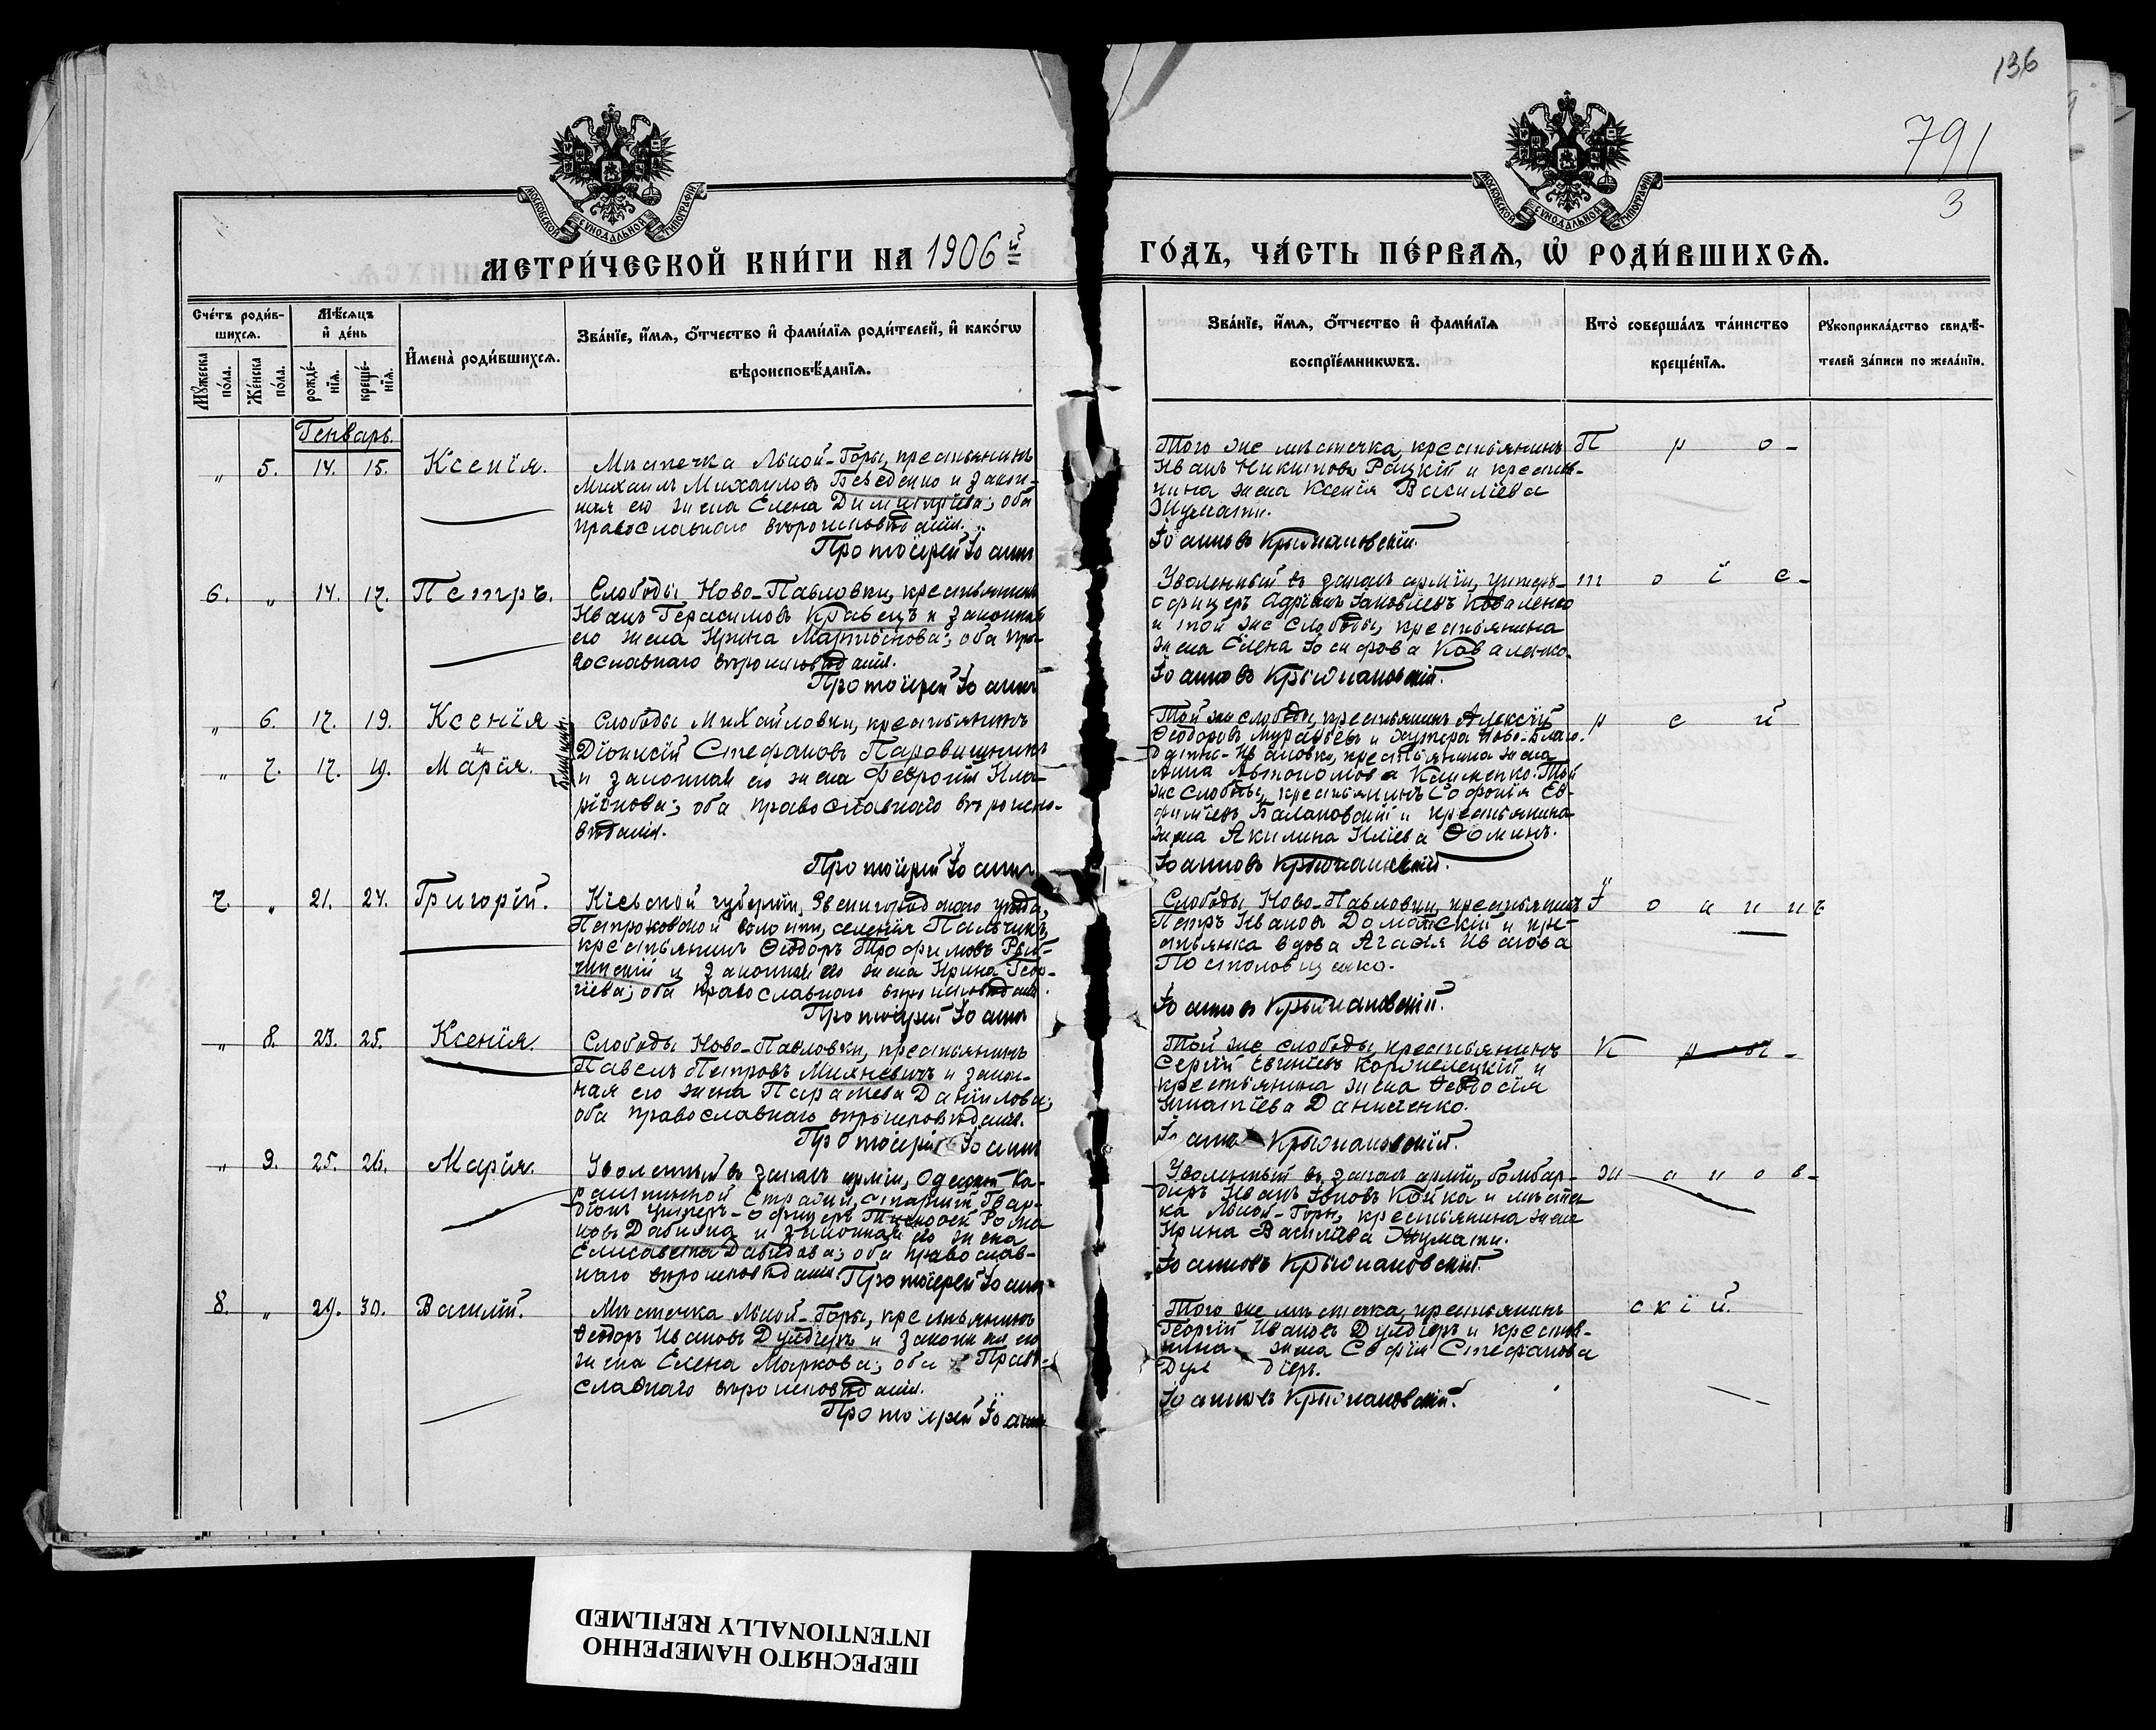 136
791
3
МОСКОВСКОЙ СѴНОДАЛЬНОЙ ТИПОГРАФІИ
МОСКОВСКОЙ СѴНОДАЛЬНОЙ ТИПОГРАФІИ
МЕТРИ́ЧЕСКОЙ КНИ́ГИ НА 1906й
ГО́ДЪ, ЧА́СТЬ ПЕ́РВАѦ, Ѡ҆ РОДИ́ВШИХСѦ.
Сче́тъ роди́в-
шихсѧ.
Мꙋ́жеска по́ла.
Же́нска по́ла.
Мѣ́сѧцъ
и҆ де́нь
рожде́-
нїѧ.
креще́-
нїѧ.
И҆мена̀ роди́вшихсѧ.
Зва́нїе, и҆́мѧ, ѻ҆́тчество и҆ фами́лїѧ роди́телей, и҆ како́гѡ
вѣроисповѣ́данїѧ.
Зва́нїе, и҆́мѧ, ѻ҆́тчество и҆ фами́лїѧ
воспрїе́мникѡвъ.
Кто̀ соверша́лъ та́инство
креще́нїѧ.
Рꙋкоприкла́дство свидѣ́-
телей за́писи по жела́нїю.
Генварь.
" 5. 14. 15. Ксенія.
Мѣстечка Лысой-Горы, крестьянинъ
Михаилъ Михаиловъ Беведенко и закон-
ная его жена Елена Димитріева; оба
православнаго вѣроисповѣданія.
Протоіерей Іоаннъ
Того же мѣстечка, крестьянинъ
Иванъ Никитовъ Рацкій и крестья-
нина жена Ксенія Василіева
Жумати.
Іоанновъ Крыжановскій.
П р о-
6. " 14. 17. Петръ.
Слободы Ново-Павловки, крестьянинъ
Иванъ Герасимовъ Кравецъ и законная
его жена Ирина Мартынова; оба пра-
вославнаго вѣроисповѣданія.
Протоіерей Іоаннъ
Уволенный въ запасъ арміи, унтеръ-
офицеръ Адріанъ Іаковлевъ Коваленко
и той же слободы, крестьянина
жена Елена Іосифова Коваленко.
Іоанновъ Крыжановскій.
т о і е-
" 6. 17. 19. Ксенія
" 7. 17. 19. Марія.
близнецы
Слободы Михайловки, крестьянинъ
Діонисій Стефановъ Паровишникъ
и законная его жена Февронія Ила-
ріонова; оба православнаго вѣроиспо-
вѣданія.
Протоіерей Іоаннъ
Той же слободы, крестьянинъ Алексій
Ѳеодоровъ Муравьевъ и хутора Ново-Благо-
датно-Ивановки, крестьянина жена
Анна Автономова Кашненко. Той
же слободы, крестьянинъ Софонія Ев-
фиміевъ Балановскій и крестьянина
жена Акилина Иліева Ѳоминъ.
Іоанновъ Крыжановскій.
р е й
7. " 21. 24. Григорій.
Кіевской губерніи, Звенигородскаго уѣзда,
Петроковской волости, селенія Пальчикъ,
крестьянинъ Ѳеодоръ Трофимовъ Рыб-
чинскій и законная его жена Ирина Геор-
гіева; оба православнаго вѣроисповѣданія.
Протоіерей Іоаннъ
Слободы Ново-Павловки, крестьянинъ
Петръ Ивановъ Доманскій и кре-
стьянка вдова Агаѳія Иванова
Постоловщенко.
Іоанновъ Крыжановскій.
І о а н н ъ
" 8. 23. 25. Ксенія.
Слободы Ново-Павловки, крестьянинъ
Павелъ Петровъ Михневичъ и закон-
ная его жена Параскева Даніилова;
оба православнаго вѣроисповѣданія.
Протоіерей Іоаннъ
Той же слободы, крестьянинъ
Сергій Евгеніевъ Корнелецкій и
крестьянина жена Ѳеодосія
Игнатіева Даниленко.
Іоанновъ Крыжановскій.
К р ы-
" 9. 25. 26. Марія.
Уволенный въ запасъ арміи, Одесской Ка-
рантинной Стражи, старшій Гвар-
діонъ унтеръ-офицеръ Тимоѳей Рома-
новъ Давыда и законная его жена
Елисавета Давидова; оба православ-
наго вѣроисповѣданія. Протоіерей Іоаннъ
Уволенный въ запасъ арміи, бомбар-
диръ Иванъ Іоновъ Койка и мѣстеч-
ка Лысой-Горы, крестьянина жена
Ирина Василіева Жумати.
Іоанновъ Крыжановскій.
ж а н о в-
8. " 29. 30. Василій.
Мѣстечка Лысой-Горы, крестьянинъ
Ѳеодоръ Ивановъ Дулдіеръ и законная его
жена Елена Маркова; оба Право-
славнаго вѣроисповѣданія.
Протоіерей Іоаннъ
Того же мѣстечка, крестьянинъ
Георгій Ивановъ Дулдіеръ и крестья-
нина жена Софія Стефанова
Дулдіеръ.
Іоанновъ Крыжановскій.
с к і й.
ПЕРЕСНЯТО НАМЕРЕННО
INTENTIONALLY REFILMED